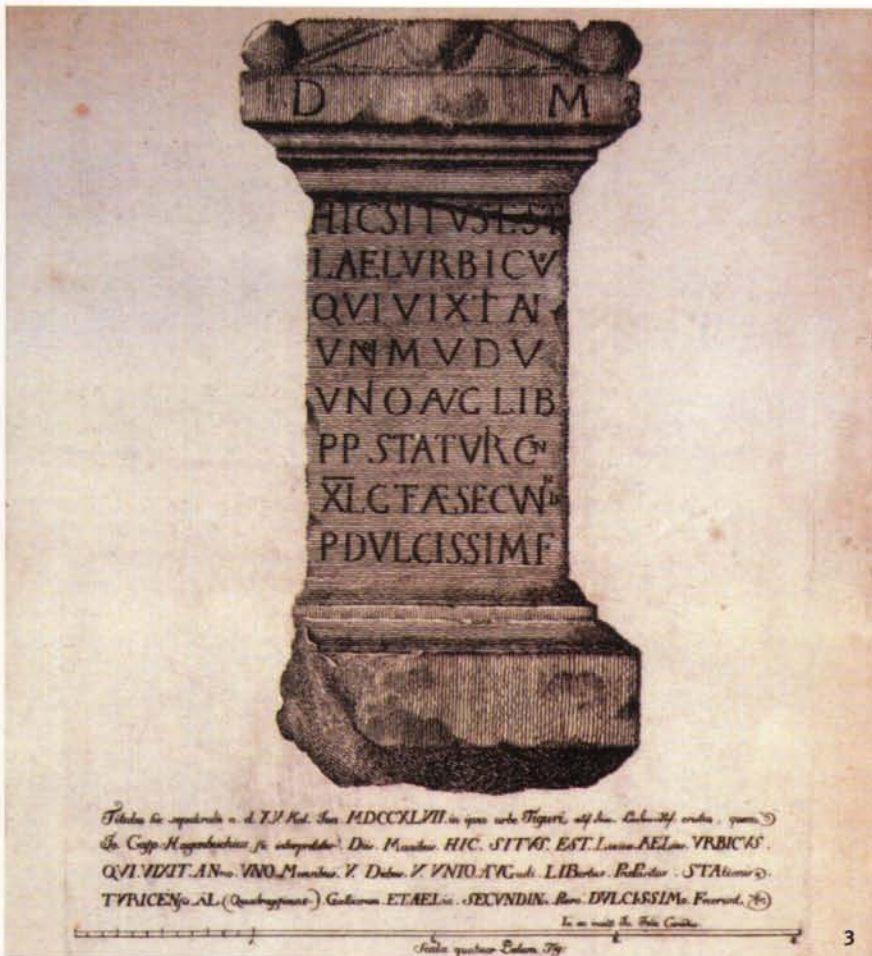 D M
HIC SITVS EST
L AEL VRBICV
QVI VIXT AN
VNN M V D V
VNO AVG LIB
PP STATVRCN
XL G T AE SECVN
P DVLCISSIM F
Titulus hic sepulcralis a. d. XV Kal. Jun. MDCCXLVII. in ipsa urbe Tiguri, erutus, quem
Jo. Casp. Hagenbuchius sic interpretatur. Diis Manibus. HIC. SITVS. EST. Lucius. AELius. VRBICVS.
QVI. VIXIT. ANno. VNO. Mensibus. V. Diebus. V. VNIO. AVGusti. LIBertus. Praepositus. STAtionis.
TVRICENsis. XL. (Quadragesimae) Galliarum. ET. AELia. SECVNDINa. Puero. DVLCISSIMo. Fecerunt.
Scala quatuor Pedum Tig.
3